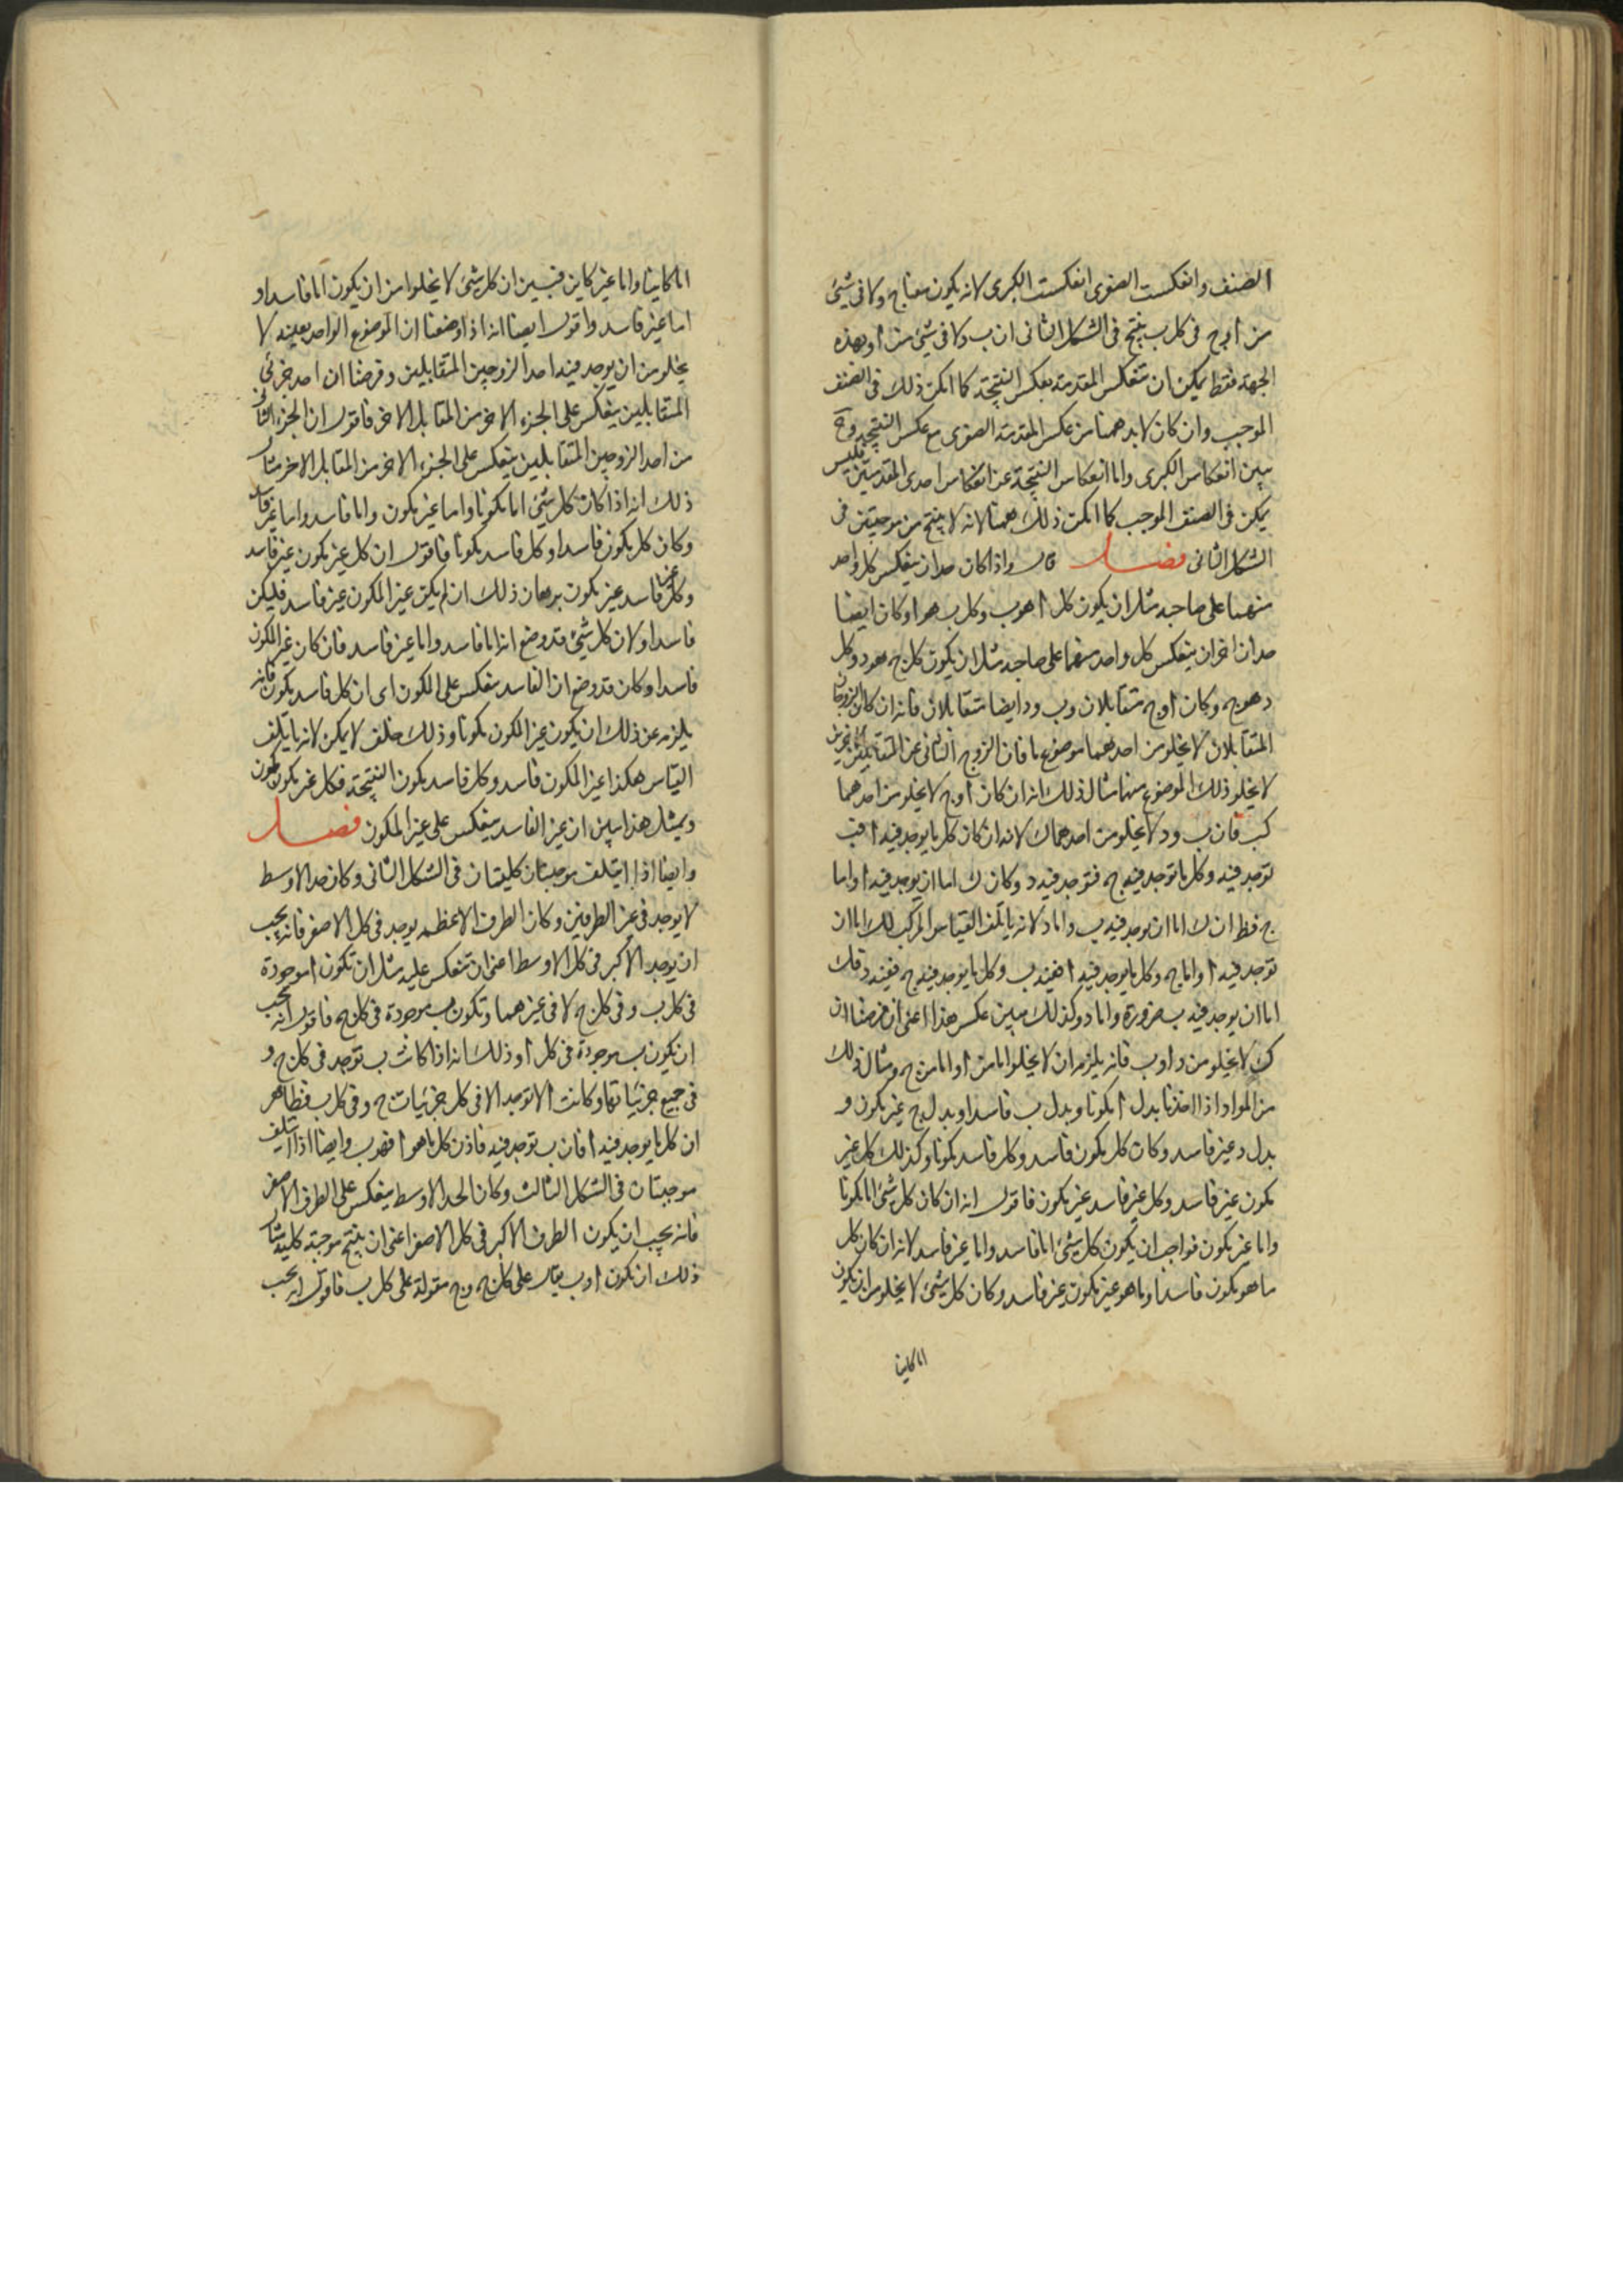 الصنف وانعكست الصغرى انعكست الكبرى لانه يكون معنا ج ولا في شيئ
من ا وج في كل ب ينتج في الشكل الثاني ان ب ولا في شيئ من ا وبهذه
الجهة فقط يمكن ان تنعكس المقدمة بعكس النتيجة كما امكن ذلك في الصنف
الموجب وان كان لابد ههنا من عكس المقدمة الصغرى مع عكس النتيجة وح
يبين انعكاس الكبرى واما انعكاس النتيجة عن انعكاس احدى المقدمتين فليس
يمكن في الصنف الموجب كما امكن ذلك ههنا لانه لا ينتج من موجبتين في
الشكل الثاني فصل قال واذا كان حدان ينعكس كل واحد
منهما على صاحبه مثل ان يكون كل ا هو ب وكل ب هو ا وكان ايضا
حدان اخران ينعكس كل واحد منهما على صاحبه مثل ان يكون كل ج هو د وكل
د هو ج وكان ا وج متقابلان وب ود ايضا متقابلان فانه ان كان الزوجان
المتقابلان لا يخلو من احدهما موضوع ما فان الزوج الثاني من المتقابلين الاخرين
لا يخلو ذلك الموضوع منهما مثال ذلك انه ان كان ا وج لا يخلو من احدهما
ك فان ب ود لا يخلو من احدهما ك لانه ان كان كل ما يوجد فيه ا فب
توجد فيه وكل ما توجد فيه ج فتوجد فيه د وكان ك اما ان يوجد فيه ا واما
ج فظ ان ك اما ان يوجد فيه ب واما د لانه يأتلف القياس المركب لك اما ان
توجد فيه ا واما ج وكل ما يوجد فيه ا ففيه ب وكل ما يوجد فيه ج ففيه د فك
اما ان يوجد فيه ب ضرورة واما د وكذلك يبين عكس هذا اعني ان فرضنا ان
ك لا يخلو من د او ب فانه يلزم ان لا يخلوا اما من ا واما من ج ومثال ذلك
من المواد اذا اخذنا بدل ا مكونا وبدل ب فاسدا وبدل ج غير مكون و
بدل د غير فاسد وكان كل مكون فاسد وكل فاسد مكونا وكذلك كل غير
مكون غير فاسد وكل غير فاسد غير مكون فاقول انه ان كان كل شيئ اما مكونا
واما غير مكون فواجب ان يكون كل شيئ اما فاسد واما غير فاسد لانه ان كان كل
ما هو مكون فاسدا وما هو غير مكون غير فاسد وكان كل شيئ لا يخلو من ان يكون
اما كاينا
اما كاينا واما غير كاين فبين ان كل شيئ لا يخلوا من ان يكون اما فاسدا و
اما غير فاسد واقول ايضا انه اذا وضعنا ان الموضوع الواحد بعينه لا
يخلو من ان يوجد فيه احد الزوجين المتقابلين وفرضنا ان احد جزئي
المتقابلين ينعكس على الجزء الاخر من المقابل الاخر فاقول ان الجزء الثاني
من احد الزوجين المتقابلين ينعكس على الجزء الاخر من المقابل الاخر مثال
ذلك انه اذا كان كل شيئ اما مكونا واما غير مكون واما فاسد واما غير فاسد
وكان كل مكون فاسدا وكل فاسد مكونا فاقول ان كل غير مكون غير فاسد
وكل غير فاسد غير مكون برهان ذلك ان لم يكن غير المكون غير فاسد فليكن
فاسدا ولان كل شيئ قد وضع انه اما فاسد واما غير فاسد فان كان غير المكون
فاسدا وكان قد وضع ان الفاسد ينعكس على المكون اى ان كل فاسد مكون فانه
يلزم عن ذلك ان يكون غير المكون مكونا وذلك خلف لا يمكن لانه يأتلف
القياس هكذا غير المكون فاسد وكل فاسد مكون النتيجة فكل غير مكون مكون
وبمثل هذا يبين ان غير الفاسد ينعكس على غير المكون فصل
وايضا اذا ايتلف موجبتان كليتان في الشكل الثاني وكان حد الاوسط
لا يوجد في غير الطرفين وكان الطرف الاعظم يوجد في كل الاصغر فانه يجب
ان يوجد الاكبر في كل الاوسط اعني ان تنعكس عليه مثل ان تكون ا موجودة
في كل ب وفي كل ج لا في غيرهما وتكون ب موجودة في كل ج فاقول انه يجب
ان يكون ب موجودة في كل ا وذلك انه اذا كانت ب توجد في كل ج و
في جميع جزئياتها وكانت ا لا توجد الا في كل جزئيات ج وفي كل ب فظاهر
ان كل ما يوجد فيه ا فان ب توجد فيه فاذن كل ما هو ا فهو ب وايضا اذا ايتلف
موجبتان في الشكل الثالث وكان الحد الاوسط ينعكس على الطرف الاصغر
فانه يجب ان يكون الطرف الاكبر في كل الاصغر اعني ان ينتج موجبة كلية مثال
ذلك ان تكون ا وب يقال على كل ج وج مقولة على كل ب فاقول انه يجب